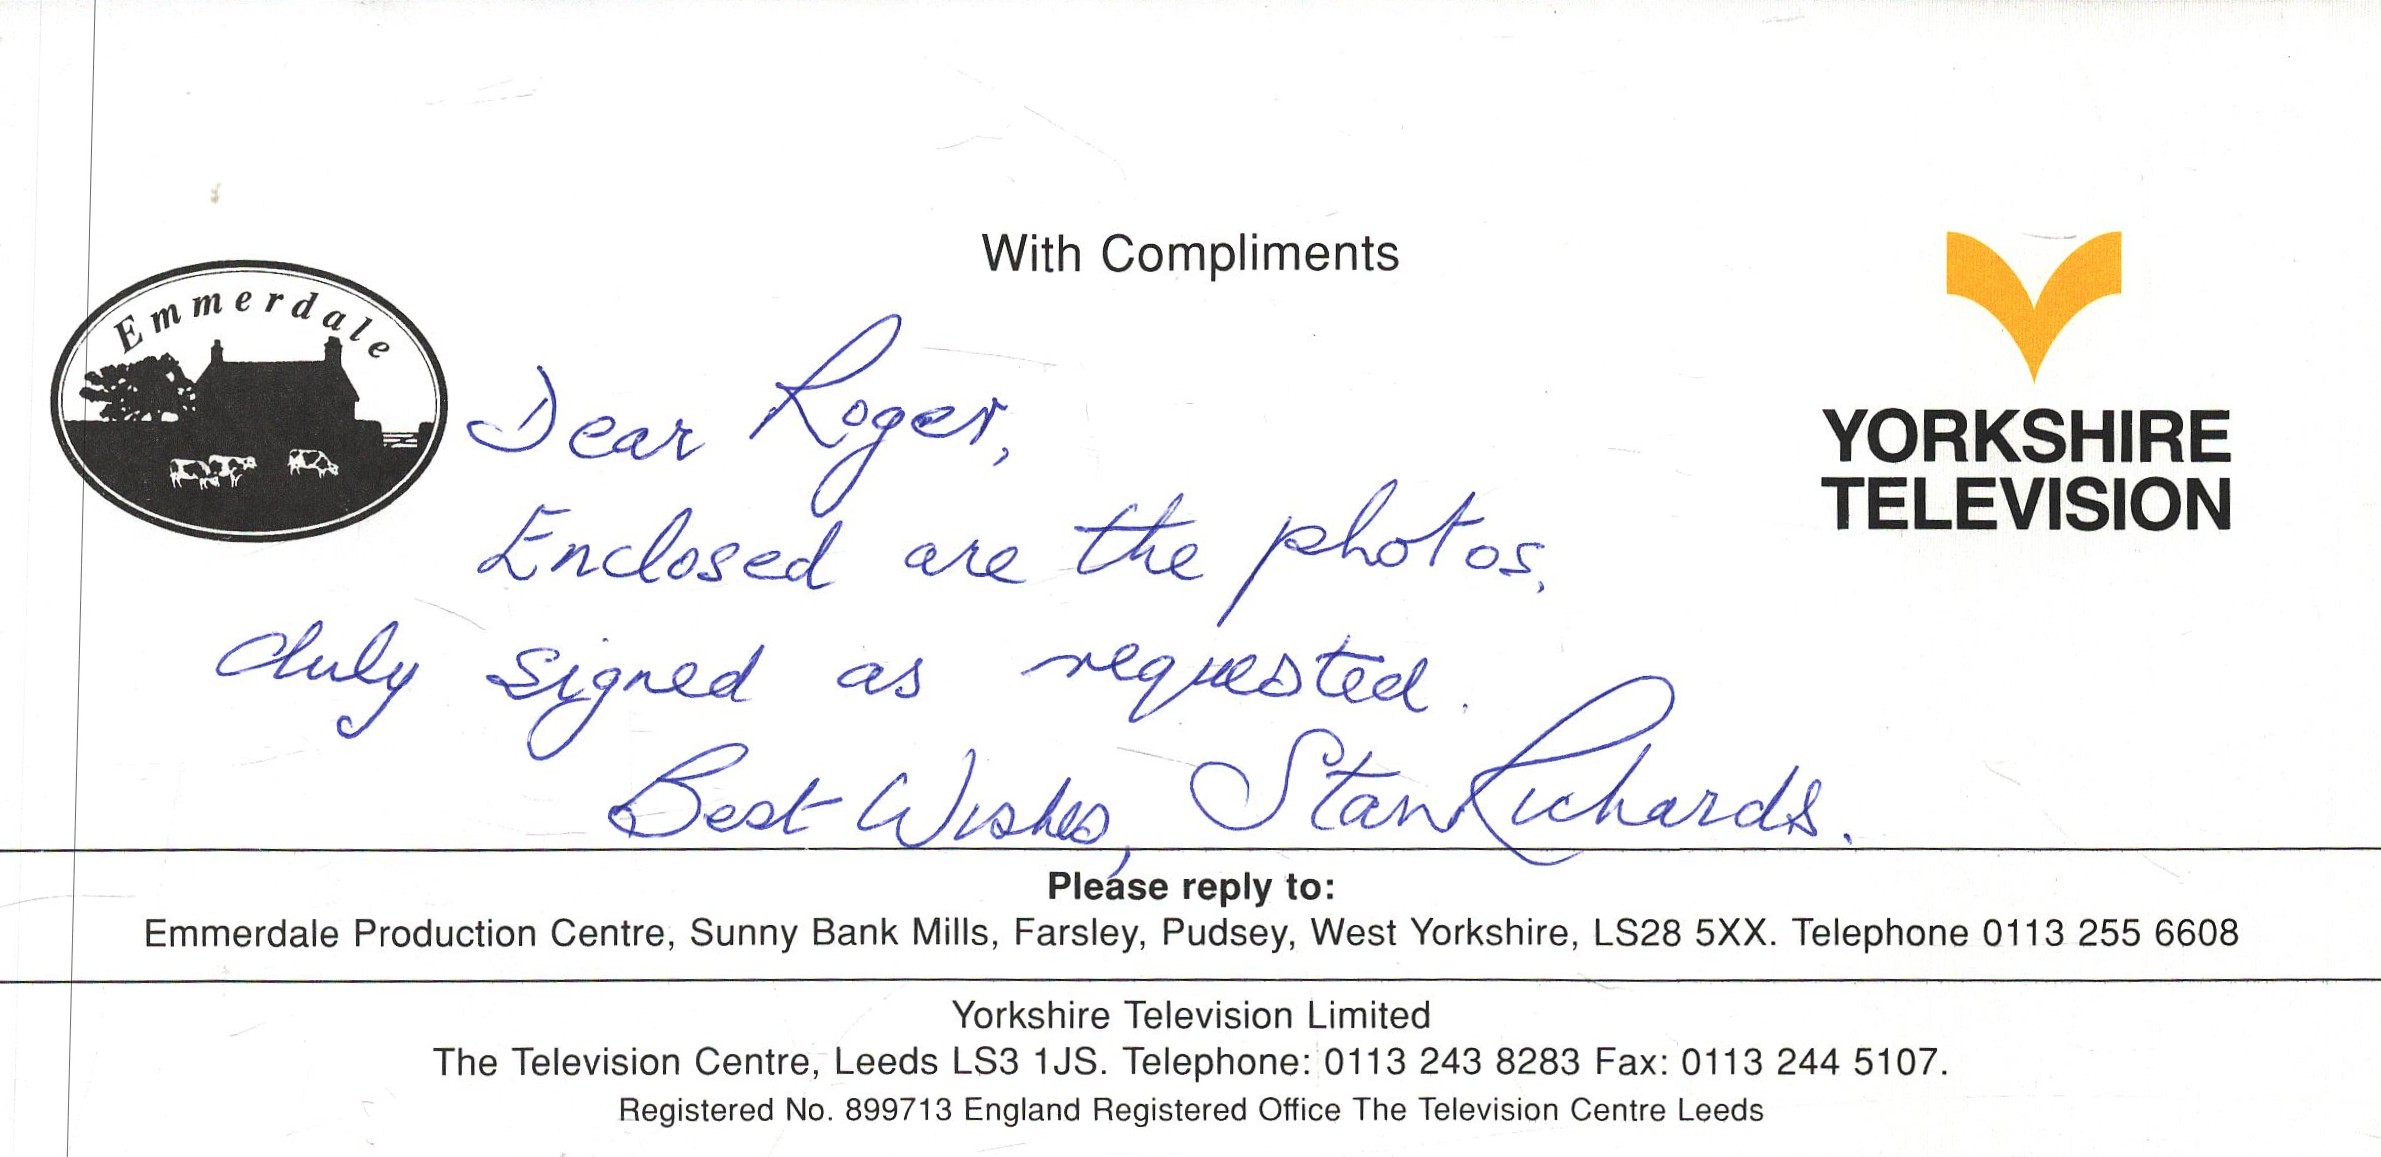 With Compliments
Emmerdale
YORKSHIRE
TELEVISION
Dear Roger,
Enclosed are the photos,
duly signed as requested.
Best Wishes, Stan Richards.
Please reply to:
Emmerdale Production Centre, Sunny Bank Mills, Farsley, Pudsey, West Yorkshire, LS28 5XX. Telephone 0113 255 6608
Yorkshire Television Limited
The Television Centre, Leeds LS3 1JS. Telephone: 0113 243 8283 Fax: 0113 244 5107.
Registered No. 899713 England Registered Office The Television Centre Leeds